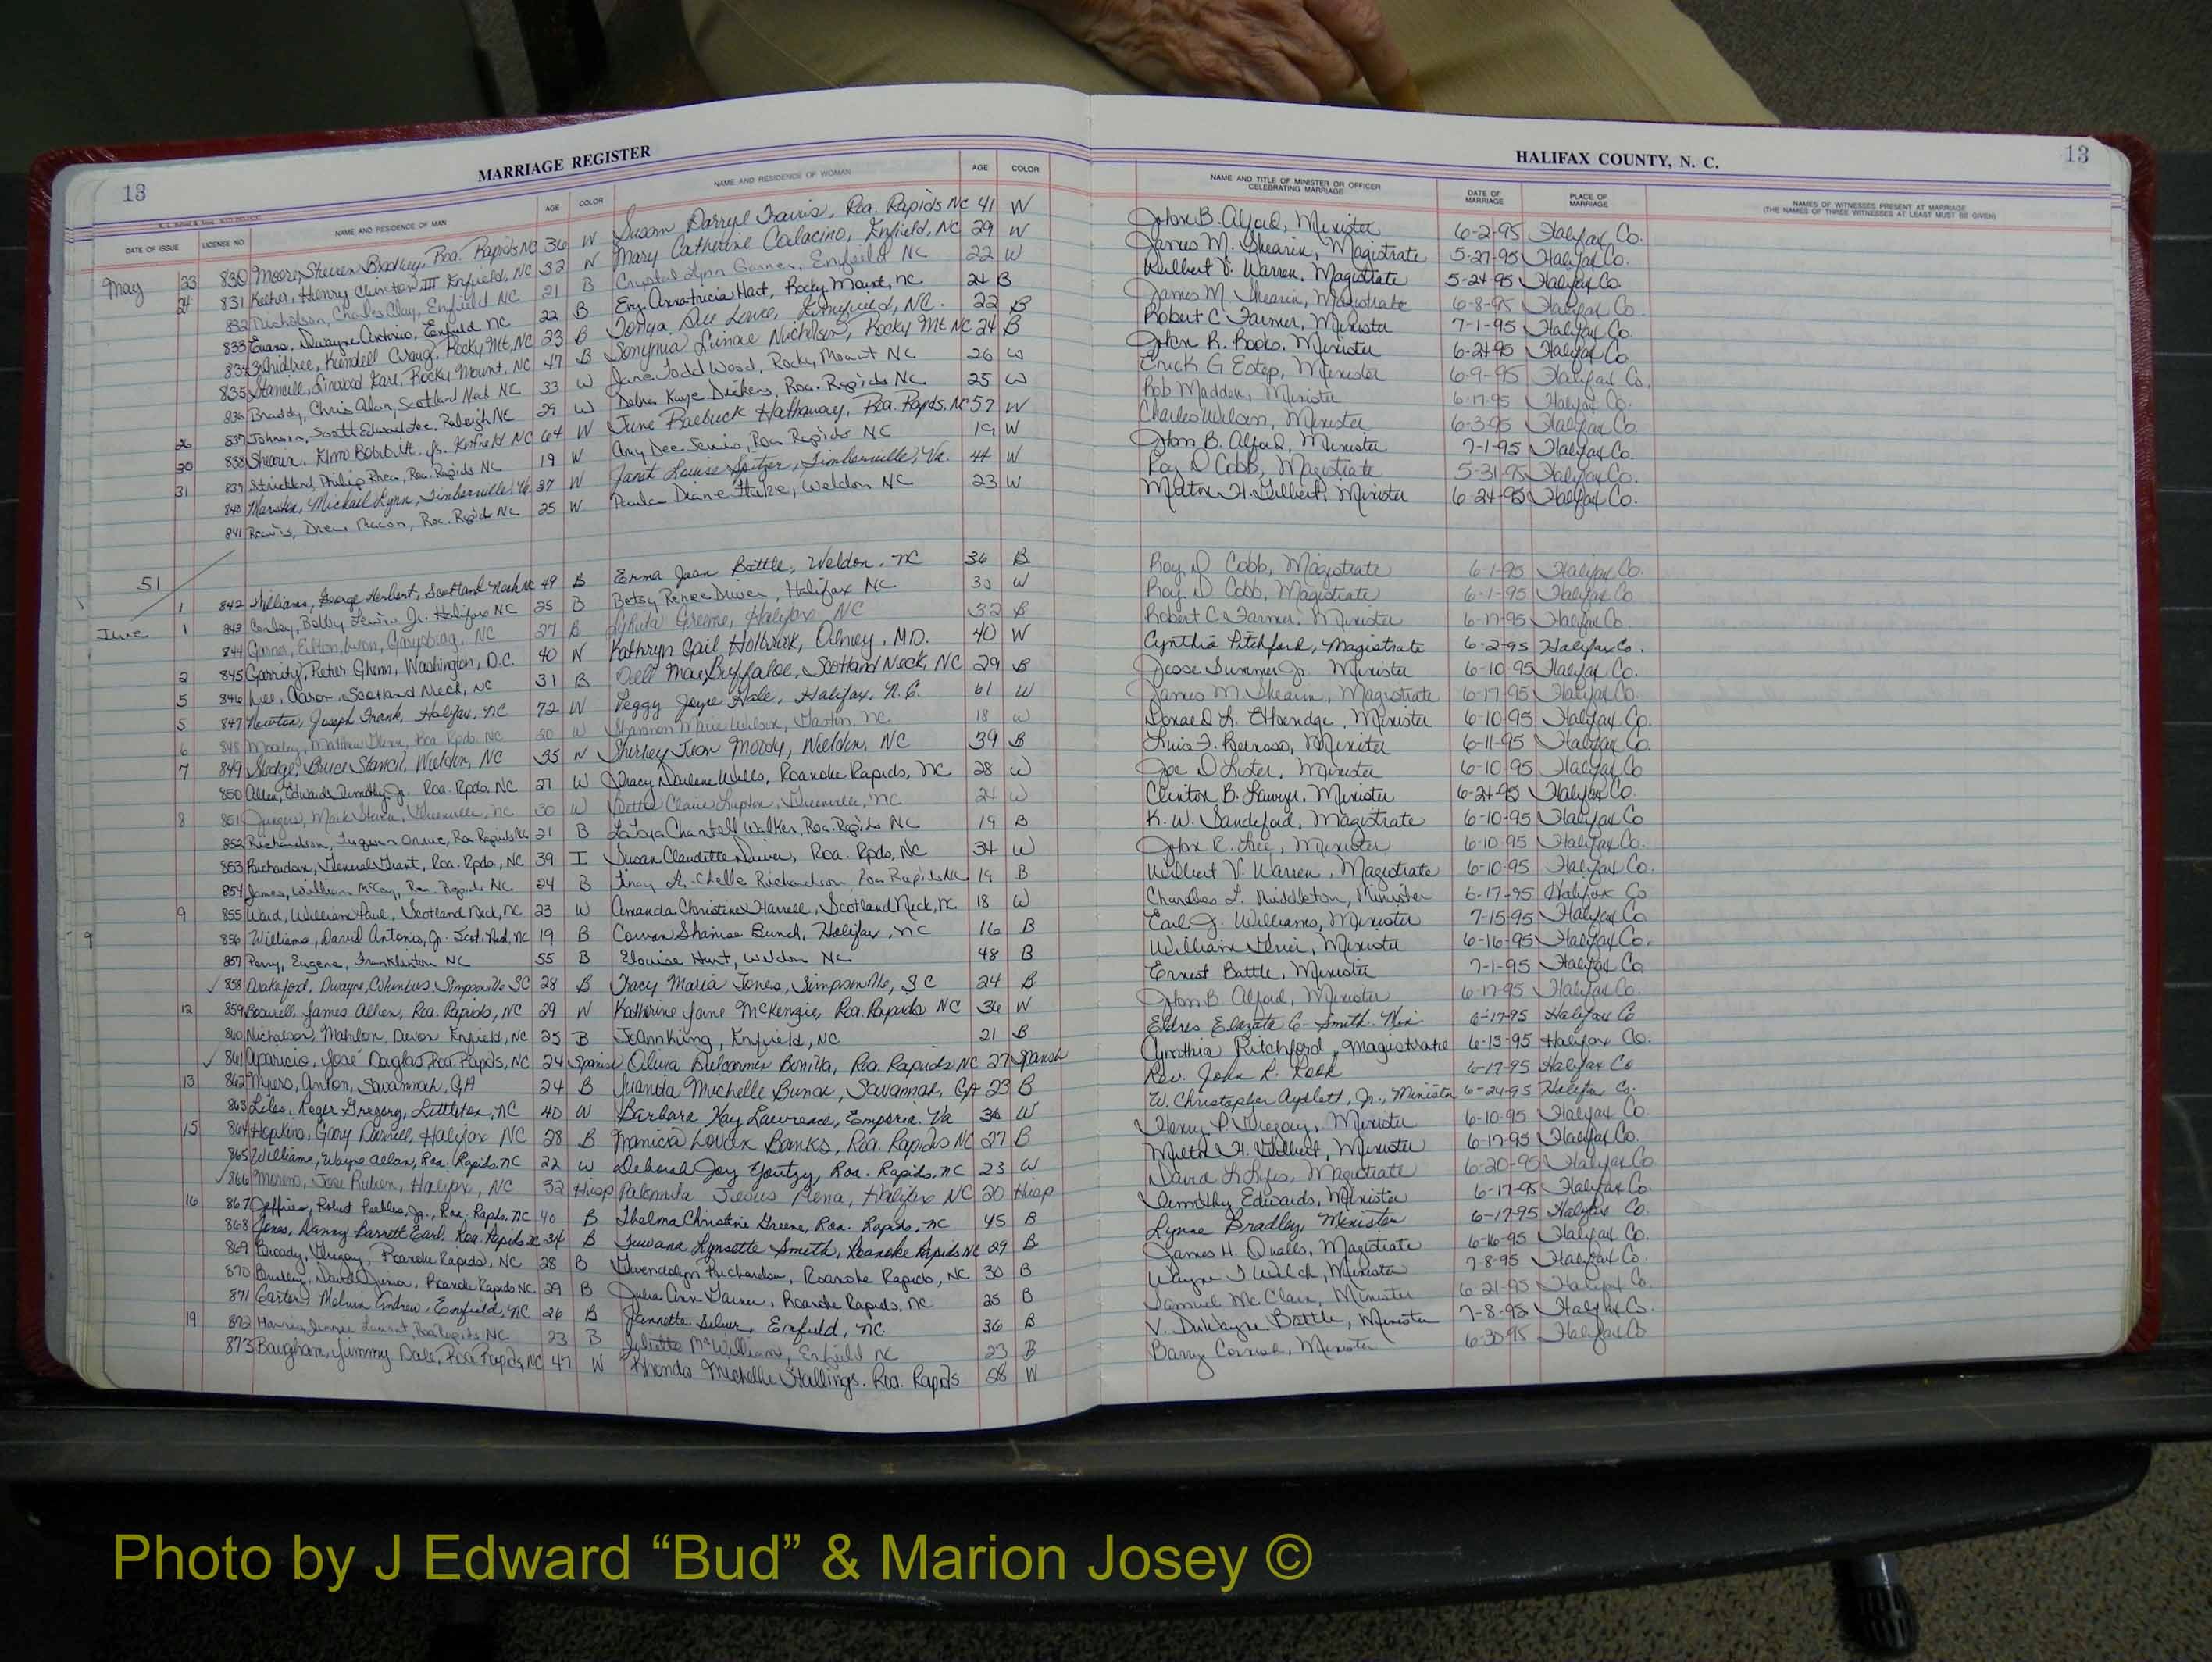 13 MARRIAGE REGISTER
HALIFAX COUNTY, N. C. 13
DATE OF ISSUE LICENSE NO. NAME AND RESIDENCE OF MAN AGE COLOR NAME AND RESIDENCE OF WOMAN AGE COLOR NAME AND TITLE OF MINISTER OR OFFICER CELEBRATING MARRIAGE DATE OF MARRIAGE PLACE OF MARRIAGE NAMES OF WITNESSES PRESENT AT MARRIAGE (THE NAMES OF THREE WITNESSES AT LEAST MUST BE GIVEN)
May 23 830 Moore, Steven Bradley, Roa. Rapids NC 36 W Susan Darryl Travis, Roa. Rapids NC 41 W John B. Alford, Minister 6-2-95 Halifax Co.
24 831 Keeter, Henry Clinton III Enfield, NC 32 W Mary Catherine Coalacino, Enfield, NC 29 W James M. Shearin, Magistrate 5-27-95 Halifax Co.
832 Nicholson, Charles Clay, Enfield NC 21 B Crystal Lynn Garner, Enfield NC 22 W Wilbert V. Warren, Magistrate 5-24-95 Halifax Co.
833 Evans, Dwayne Antonio, Enfield NC 22 B Hart, Rocky Mount, NC 24 B James M. Shearin, Magistrate 6-8-95 Halifax Co.
834 Kendell Craig, Rocky Mt, NC 23 B Tonya NC. 22 B Robert C Farmer, Minister 7-1-95 Halifax Co.
835 Stancill, Linwood Earl, Rocky Mount, NC 47 B Nicholson, Rocky Mt NC 24 B John R. Minister 6-24-95 Halifax Co
836 Braddy, Chris Alan, Scotland Neck NC 33 W Jane Todd Wood, Rocky Mount NC 26 W Erick G Estep, Minister 6-9-95 Halifax Co.
26 837 Johnson, Scott Edward Lee, Raleigh NC 29 W Debra Kaye Dickens, Roa. Rapids NC 25 W Bob Madden, Minister 6-17-95 Halifax Co.
30 838 Shearin, Elmo Bobbitt, Jr. Enfield NC 64 W June Roebuck Hathaway, Roa. Rapds. NC 57 W Charles Wilson, Minister 6-3-95 Halifax Co.
31 839 Strickland, Philip Rhea, Roa. Rapids NC 19 W Amy Dee Lewis, Roa Rapids NC 19 W John B. Alford, Minister 7-1-95 Halifax Co.
840 Michael Lynn, Timberville, Va. 37 W Janet Louise Spitzer, Timberville, Va. 44 W Roy D Cobb, Magistrate 5-31-95 Halifax Co.
841 Drew Macon, Roa. Rapids NC 25 W Paula Diane Hake, Weldon NC 23 W Milton H. Gilbert, Minister 6-24-95 Halifax Co.
51
1 842 Williams, George Herbert, Scotland Neck NC 49 B Erma Jean Battle, Weldon, NC 36 B Roy D Cobb, Magistrate 6-1-95 Halifax Co.
June 1 843 Bobby Lewis Jr. Halifax NC 25 B Betsy Renee Driver, Halifax NC 33 W Roy D Cobb, Magistrate 6-1-95 Halifax Co
844 Garner, Garysburg, NC 27 B Greene, Halifax NC 32 B Robert C Farmer, Minister 6-17-95 Halifax Co.
2 845 Garrity, Peter Glenn, Washington, D.C. 40 W Kathryn Gail Holbrook, Olney, MD. 40 W Cynthia Pitchford, Magistrate 6-2-95 Halifax Co.
5 846 Lee, Aaron, Scotland Neck, NC 31 B Odell Mae Buffaloe, Scotland Neck, NC 29 B Jesse Sumner Jr. Minister 6-10-95 Halifax Co.
5 847 Newton, Joseph Frank, Halifax, NC 72 W Peggy Joyce Hale, Halifax, N.C. 61 W James M Shearin, Magistrate 6-17-95 Halifax Co.
6 848 Matthew Glenn, Roa Rpds. NC 20 W Shannon Marie Wilson, Gaston, NC 18 W Donald L. Etheridge, Minister 6-10-95 Halifax Co.
7 849 Sledge, Bruce Stancil, Weldon, NC 35 W Shirley Jean Moody, Weldon, NC 39 B Minister 6-11-95 Halifax Co.
850 Allen, Edward Timothy Jr. Roa. Rpds. NC 27 W Tracy Darlene Wells, Roanoke Rapids, NC 28 W Joe D Lister, Minister 6-10-95 Halifax Co
8 851 Mark Steven, Greenville, NC 30 W Claire Lupton, Greenville, NC 24 W Clinton B. Sawyer, Minister 6-24-95 Halifax Co.
852 Richardson, Roa Rapids NC 21 B LaToya Chantell Walker, Roa. Rapids NC 19 B K. W. Sandeford, Magistrate 6-10-95 Halifax Co
853 Richardson, General Grant, Roa. Rpds., NC 39 I Susan Claudette Driver, Roa. Rpds, NC 34 W John R. Minister 6-10-95 Halifax Co.
854 James, William McCoy, Roa. Rapids NC 24 B Richardson Roa Rapids NC 19 B Wilbert V. Warren, Magistrate 6-10-95 Halifax Co.
9 855 Ward, William Paul, Scotland Neck, NC 23 W Amanda Christine Harrell, Scotland Neck, NC 18 W Charles L. Middleton, Minister 6-17-95 Halifax Co
9 856 Williams, David Antonio, Jr. Scot. Neck, NC 19 B Shanise Bunch, Halifax, NC 16 B Earl J. Williams, Minister 7-15-95 Halifax Co
857 Perry, Eugene, Franklinton NC 55 B Elouise Hunt, Weldon NC 48 B William Minister 6-16-95 Halifax Co.
✓ 858 Drakeford, Dwayne, Columbus, Simpsonville SC 28 B Tracy Maria Jones, Simpsonville, SC 24 B Ernest Battle, Minister 7-1-95 Halifax Co
12 859 Boswell, James Allen, Roa. Rapids, NC 29 W Katherine Jane McKenzie, Roa. Rapids NC 36 W John B. Alford, Minister 6-17-95 Halifax Co.
860 Nicholson, Mahlon, Devon Enfield, NC 25 B JoAnn King, Enfield, NC 21 B C. Smith. Min 6-17-95 Halifax Co
✓ 861 Aparicio, José Douglas, Roa. Rapids, NC 24 Spanish Oliva Delcarmen Bonilla, Roa. Rapids NC 27 Spanish Cynthia Pitchford, Magistrate 6-13-95 Halifax Co.
13 862 Myers, Anton, Savannah, GA 24 B Juanita Michelle Bunch, Savannah, GA 23 B Rev. John R. Rook 6-17-95 Halifax Co
863 Liles, Roger Gregory, Littleton, NC 40 W Barbara Kay Lawrence, Emporia, Va 36 W W. Christopher Aydlett, Jr., Minister 6-24-95 Halifax Co.
15 864 Hopkins, Gary Darnell, Halifax NC 28 B Monica Banks, Roa. Rapids NC 27 B Henry P. Gregory, Minister 6-10-95 Halifax Co.
865 Williams, Wayne Allan, Roa. Rapids, NC 22 W Deborah Joy Roa. Rapids, NC 23 W Milton H. Gilbert, Minister 6-17-95 Halifax Co.
✓ 866 Moreno, Jose Ruben, Halifax, NC 32 Hisp Palomita Jesus Mena, Halifax NC 20 Hisp David L Magistrate 6-20-95 Halifax Co
16 867 Jeffries, Robert Peebles, Jr., Roa. Rapds. NC 40 B Thelma Christine Greene, Roa. Rapds, NC 45 B Timothy Edwards, Minister 6-17-95 Halifax Co.
868 Jones, Danny Barrett Earl. Roa. Rapids NC 34 B Lynsette Smith, Roanoke Rapids NC 29 B Lynne Bradley, Minister 6-17-95 Halifax Co.
869 Gregory, Roanoke Rapids, NC 28 B Gwendolyn Richardson, Roanoke Rapids, NC 30 B James H. Qualls, Magistrate 6-16-95 Halifax Co.
870 David Junior, Roanoke Rapids NC 29 B Julia Ann Roanoke Rapids, NC 25 B Wayne J Welch, Minister 7-8-95 Halifax Co.
871 Carter, Melvin Andrew, Enfield, NC 26 B Jeannette Silver, Enfield, NC 36 B Samuel McClain, Minister 6-21-95 Halifax Co.
19 872 Roa Rapids NC 23 B Juliette McWilliams, Enfield NC 23 B V. DuWayne Battle, Minister 7-8-95 Halifax Co.
873 Baugham, Jimmy Dale, Roa Rapids, NC 47 W Rhonda Michelle Stallings, Roa. Rapids 28 W Barry Cornish, Minister 6-30-95 Halifax Co
Photo by J Edward “Bud” & Marion Josey ©